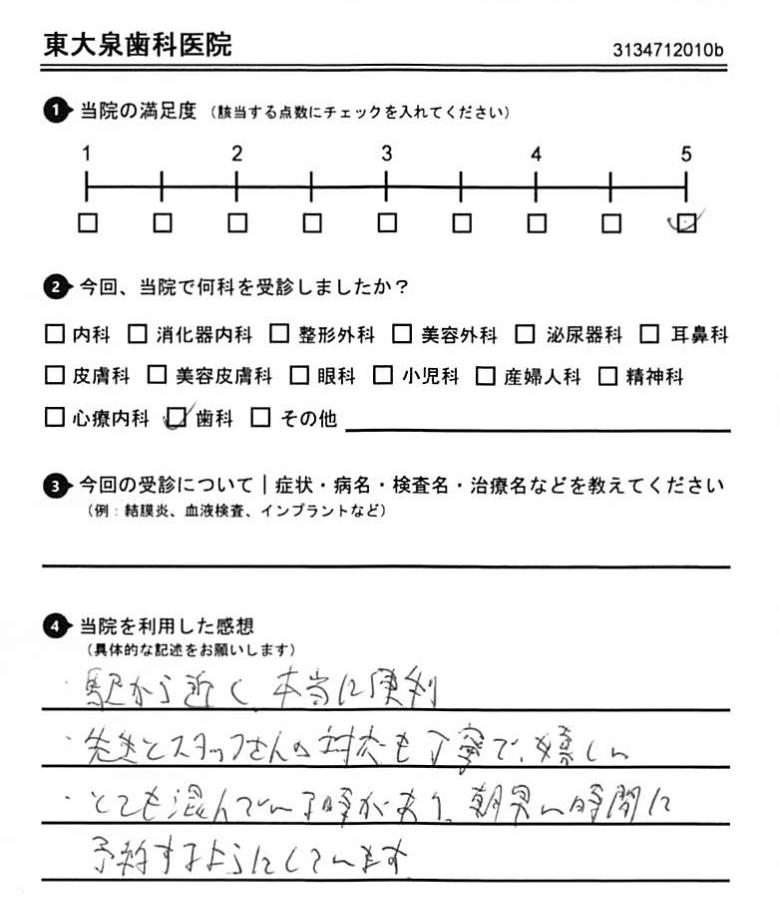 東大泉歯科医院 3134712010b
1 当院の満足度 （該当する点数にチェックを入れてください）
1 2 3 4 5
2 今回、当院で何科を受診しましたか？
□ 内科 □ 消化器内科 □ 整形外科 □ 美容外科 □ 泌尿器科 □ 耳鼻科
□ 皮膚科 □ 美容皮膚科 □ 眼科 □ 小児科 □ 産婦人科 □ 精神科
□ 心療内科 ☑ 歯科 □ その他
3 今回の受診について｜症状・病名・検査名・治療名などを教えてください
（例：結膜炎、血液検査、インプラントなど）
4 当院を利用した感想
（具体的な記述をお願いします）
・駅から近く、本当に便利
・先生とスタッフさんの対応も丁寧で、嬉しい
・とても混んでいる時があり、朝早い時間に
予約するようにしています